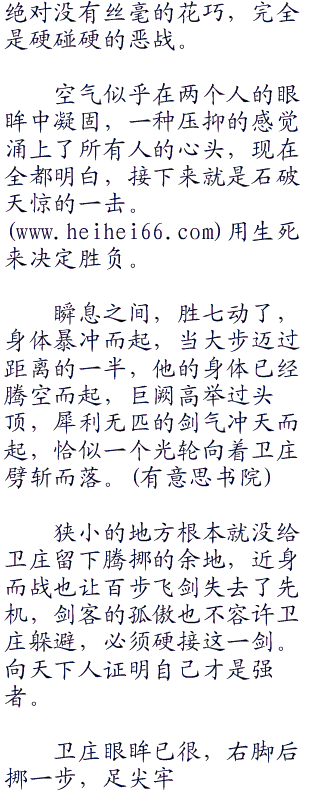 绝对没有丝毫的花巧，完全
是硬碰硬的恶战。
空气似乎在两个人的眼
眸中凝固，一种压抑的感觉
涌上了所有人的心头，现在
全都明白，接下来就是石破
天惊的一击。
(www.heihei66.com)用生死
来决定胜负。
瞬息之间，胜七动了，
身体暴冲而起，当大步迈过
距离的一半，他的身体已经
腾空而起，巨阙高举过头
顶，犀利无匹的剑气冲天而
起，恰似一个光轮向着卫庄
劈斩而落。(有意思书院)
狭小的地方根本就没给
卫庄留下腾挪的余地，近身
而战也让百步飞剑失去了先
机，剑客的孤傲也不容许卫
庄躲避，必须硬接这一剑。
向天下人证明自己才是强
者。
卫庄眼眸已很，右脚后
挪一步，足尖牢